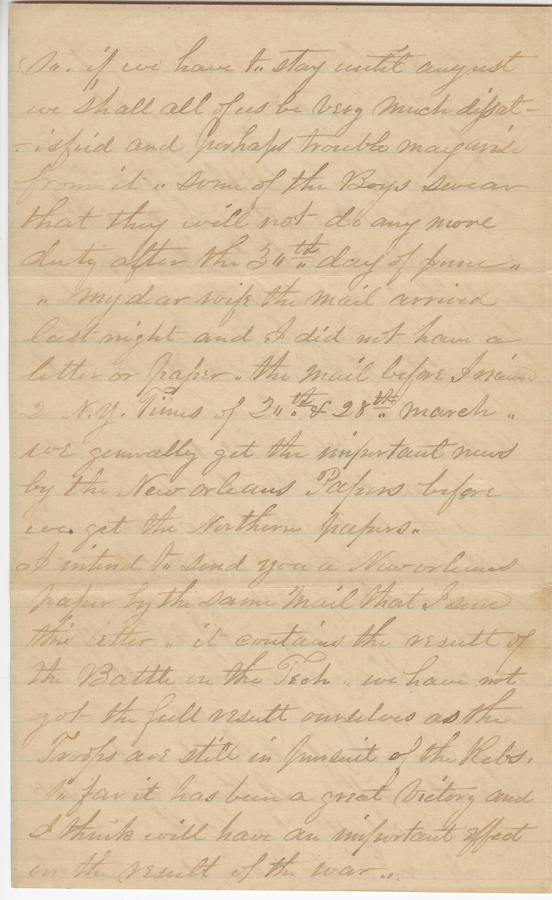 so. if we have to stay until august
we shall all of us be very much dissat-
-isfied and perhaps trouble may arise
from it " some of the Boys swear
that they will not do any more
duty after the 30th day of June "
" My dear wife the mail arrived
last night and I did not have a
letter or paper " the mail before I
2 N.Y. Times of & 28th March "
we generally get the important news
by the New orleans Papers before
we. get the Northern papers "
I intend to send you a New orleans
paper by the same mail that I
this letter " it contains the result of
the Battle on the Tech " we have not
got the full result ourselves as the
Troops are still in pursuit of the Rebs.
so far it has been a great victory and
I think will have an important effect
on the result of the war "